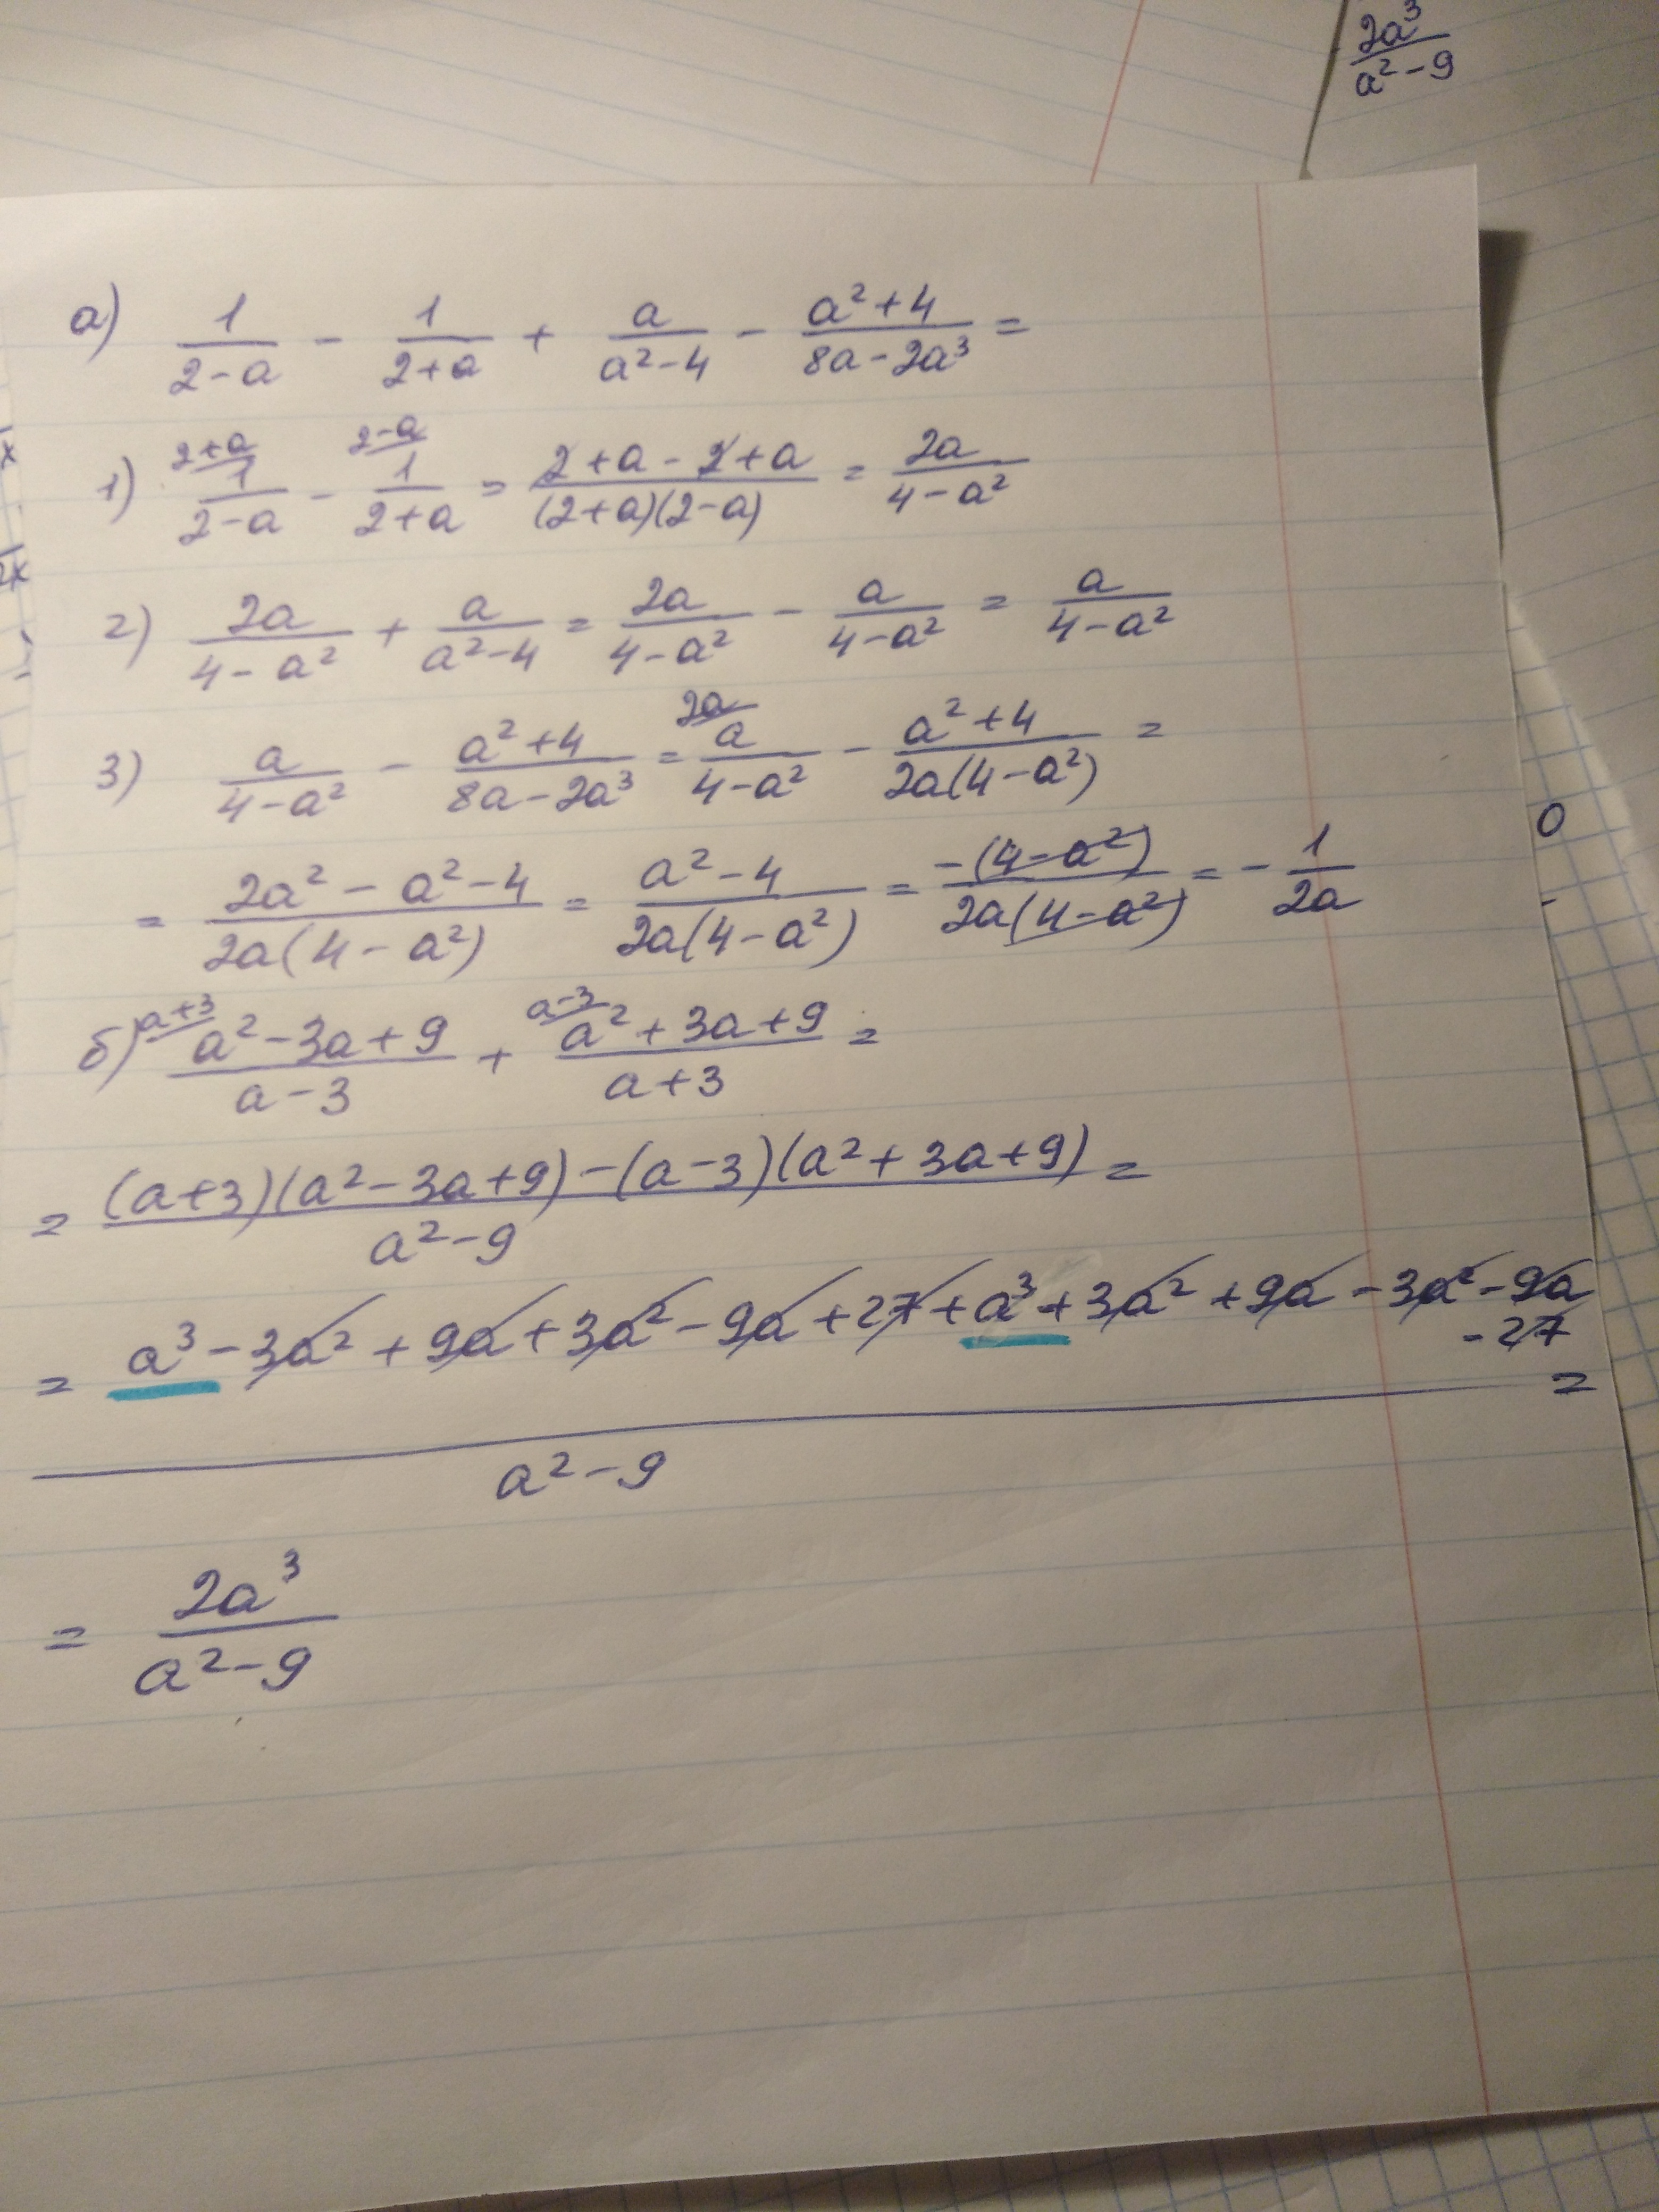 2a³/(a²-9)
а) 1/(2-a) - 1/(2+a) + a/(a²-4) - (a²+4)/(8a-2a³) =
2+a 2-a
1) 1/(2-a) - 1/(2+a) = (2+a-2+a)/((2+a)(2-a)) = 2a/(4-a²)
2) 2a/(4-a²) + a/(a²-4) = 2a/(4-a²) - a/(4-a²) = a/(4-a²)
2a
3) a/(4-a²) - (a²+4)/(8a-2a³) = a/(4-a²) - (a²+4)/(2a(4-a²)) =
0
= (2a²-a²-4)/(2a(4-a²)) = (a²-4)/(2a(4-a²)) = -(4-a²)/(2a(4-a²)) = -1/(2a)
a+3 a-3
б) (a²-3a+9)/(a-3) + (a²+3a+9)/(a+3) =
= ((a+3)(a²-3a+9)-(a-3)(a²+3a+9))/(a²-9) =
= (a³-3a²+9a+3a²-9a+27+a³+3a²+9a-3a²-9a
-27)/(a²-9) =
= 2a³/(a²-9)